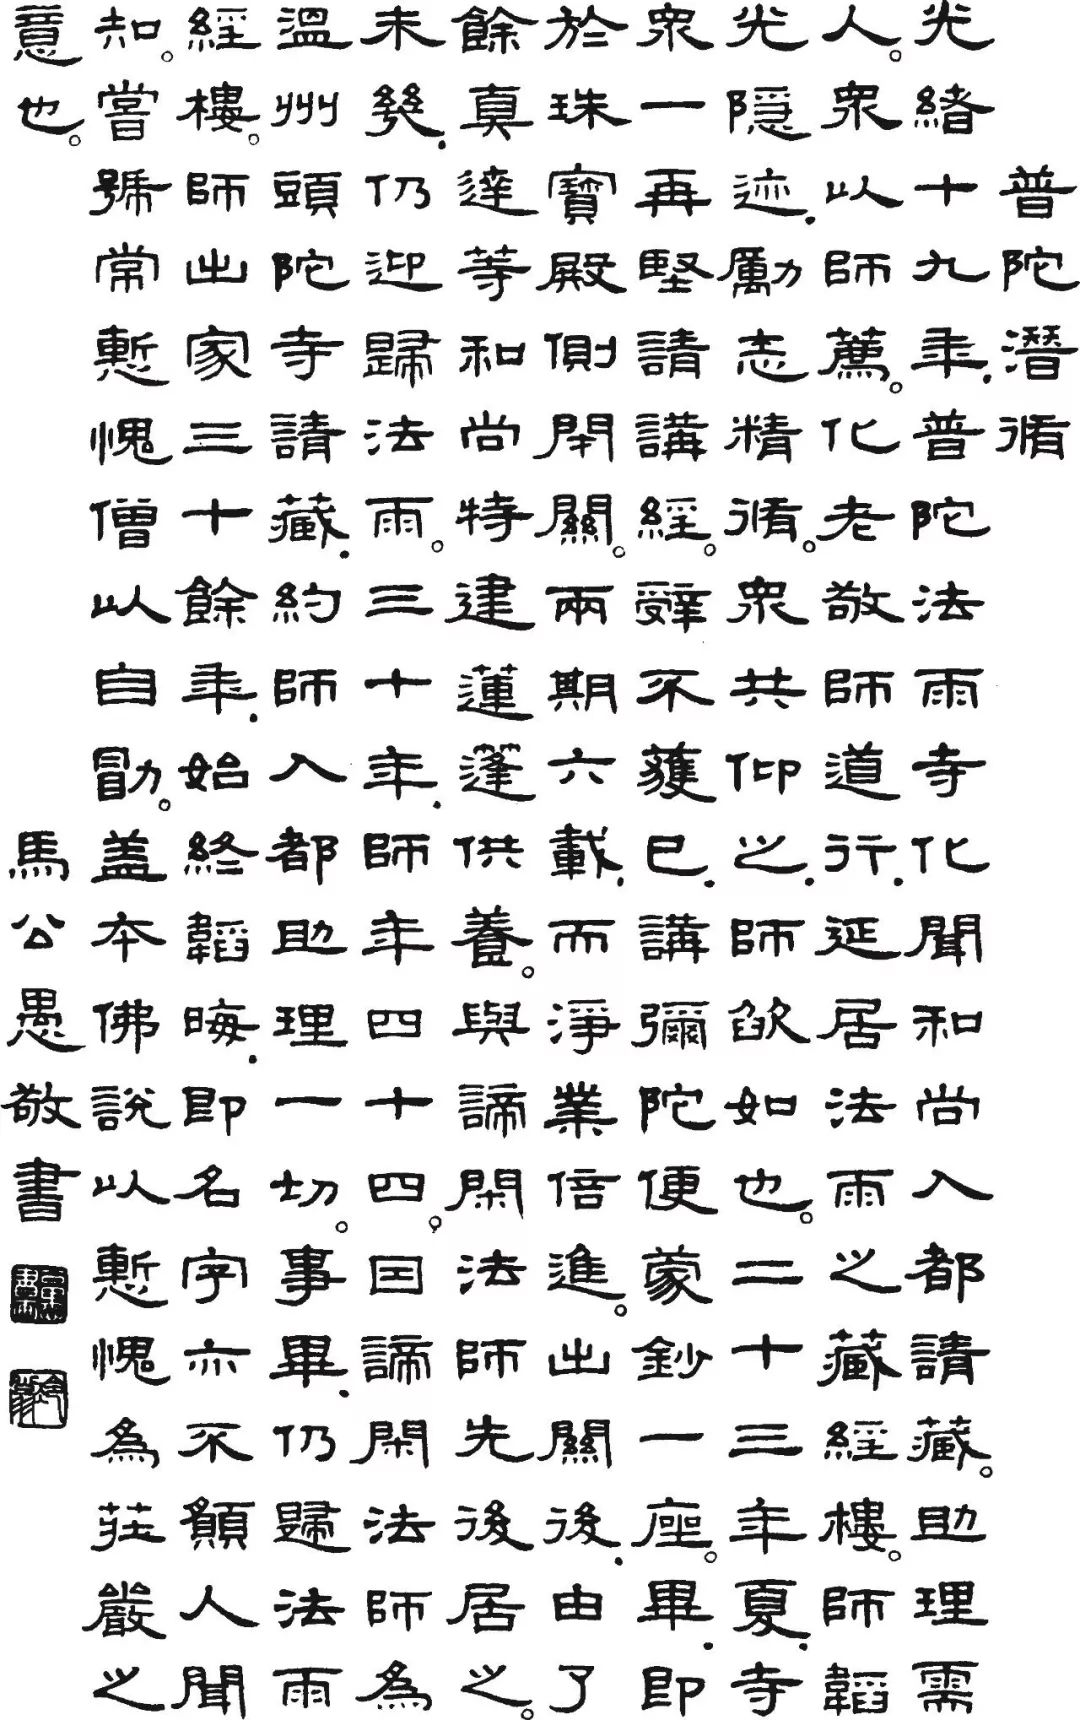 普陀潛脩
光緒十九年.普陀法雨寺化聞和尚入都請藏。助理需
人。眾以師薦。化老敬師道行.延居法雨之藏經樓。師韜
光隱迹.勵志精脩。眾共仰之.師欿如也。二十三年夏.寺
眾一再堅請講經。辭不獲已.講彌陀便蒙鈔一座。畢.即
於珠寶殿側閉關。兩期六載.而淨業倍進。出關後.由了
餘真達等和尚特建蓮蓬供養。與諦閑法師先後居之。
未幾.仍迎歸法雨。三十年.師年四十四。囙諦閑法師為
溫州頭陀寺請藏.約師入都助理一切。事畢.仍歸法雨
經樓。師出家三十餘年.始終韜晦.即名字亦不願人聞
知。嘗號常慙愧僧以自勖。盖本佛說以慙愧為莊嚴之
意也。
馬公愚敬書